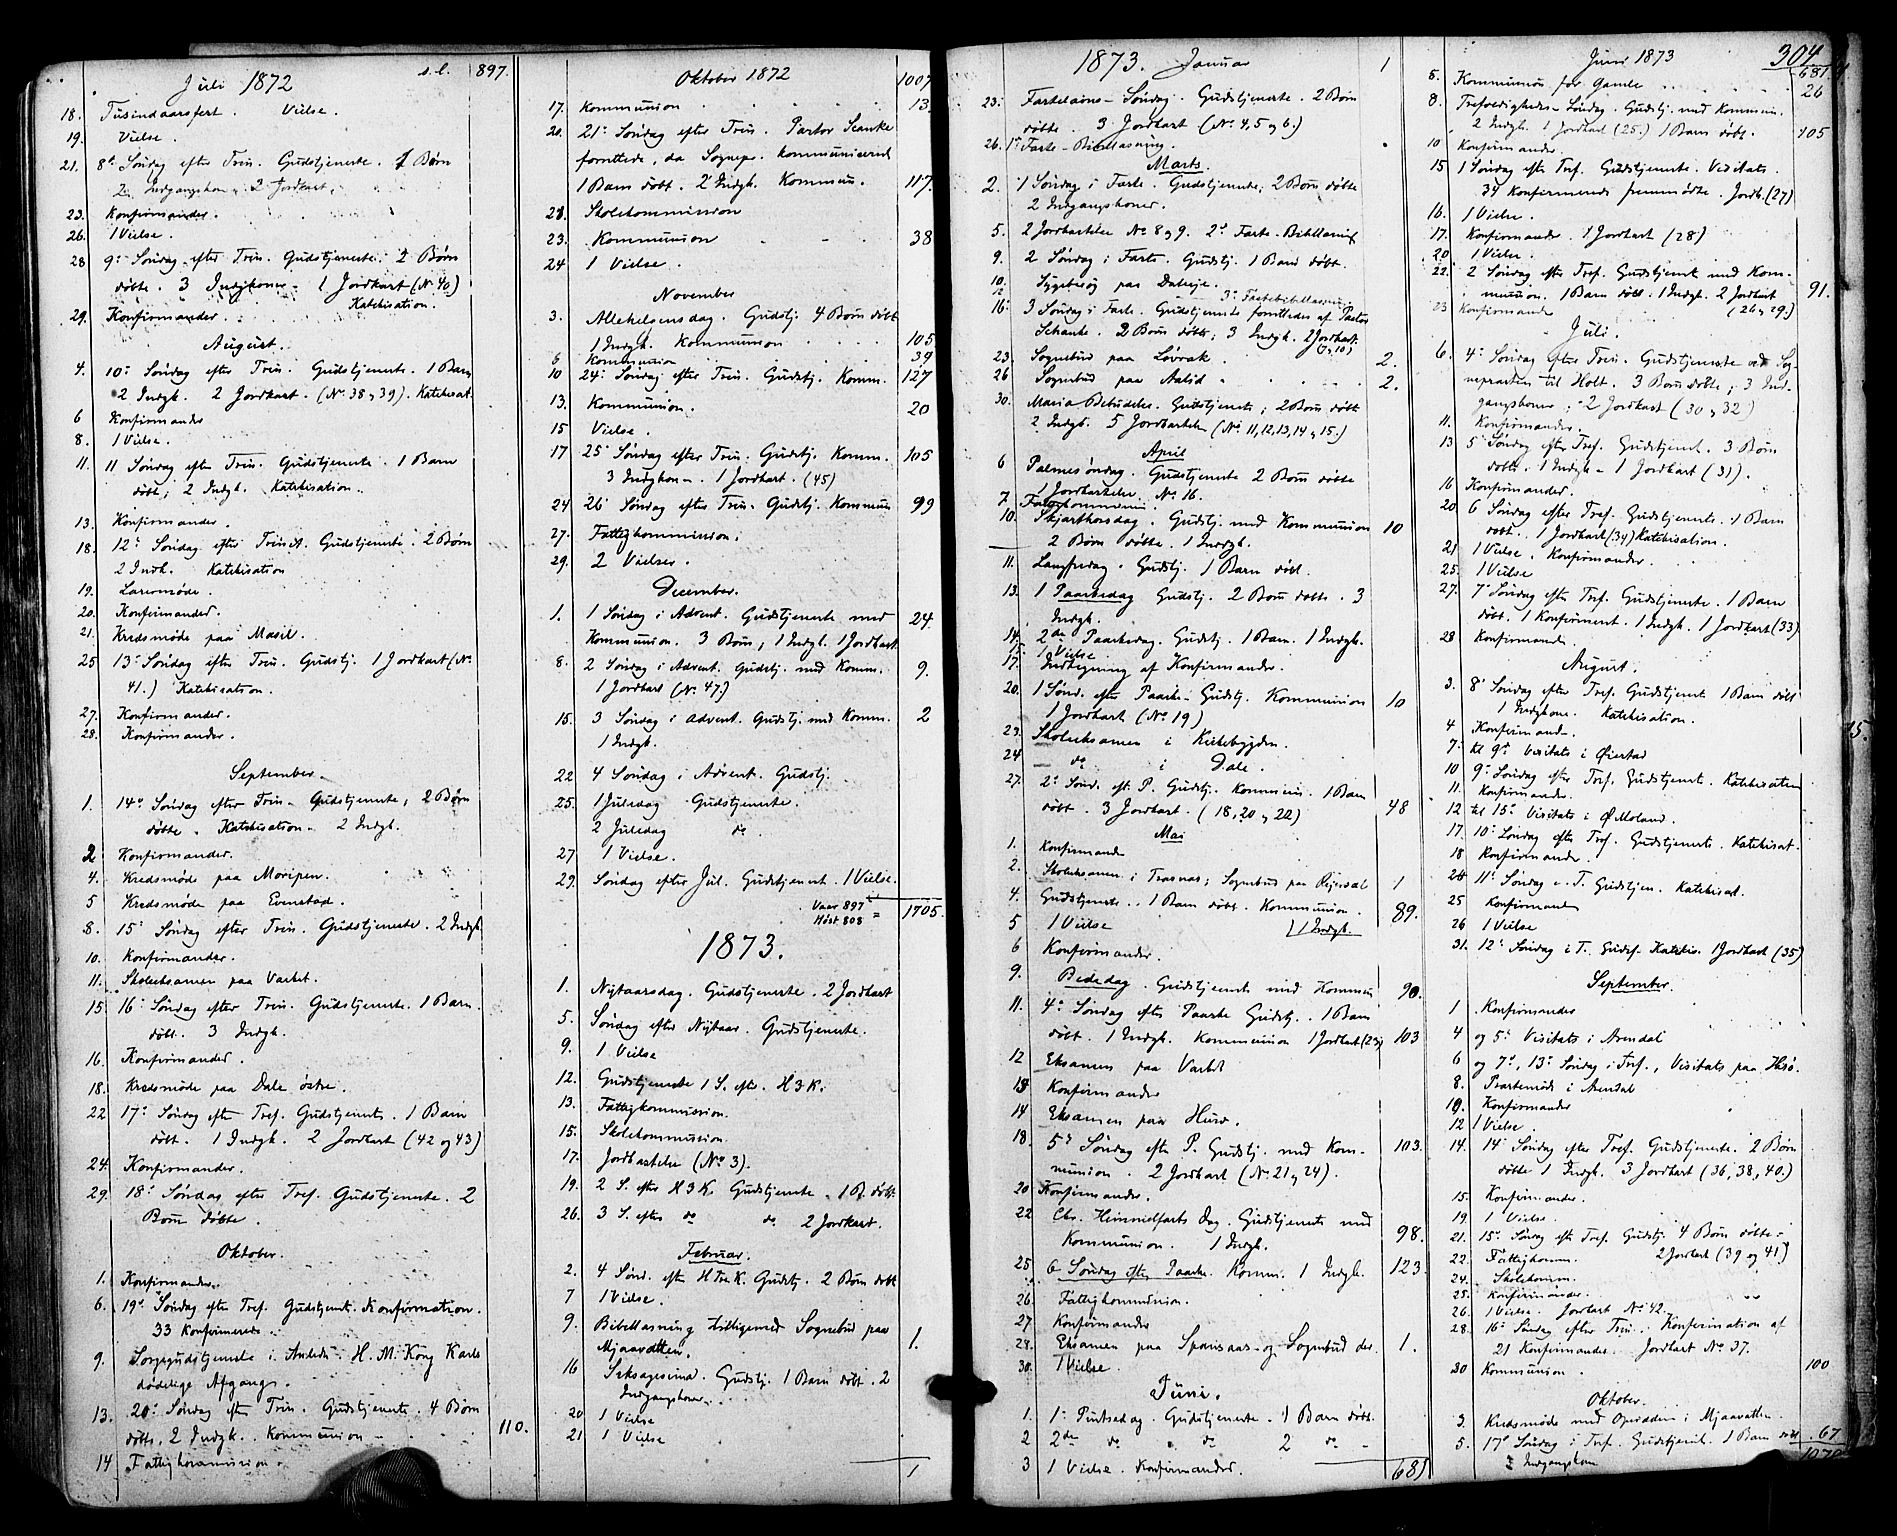 Juli 1872 s.l. 897.
18. Tusindaarsfest. Vielse.
19. Vielse.
21. 8de Søndag efter Trin. Gudstjeneste. 1 Børn
2 Indgangskon. 2 Jordkast.
23. Konfirmander.
26. 1 Vielse.
28 9de Søndag efter Trin. Gudstjeneste. 2 Børn
døbte. 3 Indgkoner - 1 Jordkast (No 40)
Katekisation.
29. Konfirmander.
August.
4. 10de Søndag efter Trin. Gudstjeneste. 1 Barn
2 Indgk. 2 Jordkast. (No. 38 og 39). Katekisat.
6 Konfirmander
8. 1 Vielse.
11. 11 Søndag efter Trin. Gudstjeneste. 1 Barn
døbt; 2 Indgk. Katekisation.
13. Konfirmander.
18. 12te Søndag efter Trinit. Gudstjeneste. 2 Børn
2 Indk. Katekisation
19. Læremøde.
20. Konfirmander.
21. Kredsmøde paa Masil.
25 13de Søndag efter Trin. Gudstj. 1 Jordkast (No.
41.) Katekisation.
27. Konfirmander.
28. Konfirmander.
September.
1. 14de Søndag efter Trin. Gudstjeneste; 2 Børn
døbte. Katekisation - 2 Indgk.
2 Konfirmander.
4. Kredsmøde paa Moripen.
5 Kredsmøde paa Evenstad.
8. 15de Søndag efter Trin. Gudstjeneste. 2 Indgk
10. Konfirmander.
11. Skoleeksamen paa Varket.
15. 16de Søndag efter Trin. Gudstjeneste. 1 Barn.
døbt. 3 Indgk.
16. Konfirmander.
18. Kredsmøde paa Dale østre.
22 17de Søndag efter Tref. Gudstjeneste. 1 Barn
døbt. 1 Indgk. 2 Jordkast (42 og 43)
24. Konfirmander.
29. 18de Søndag efter Tref. Gudstjeneste. 2
Børn døbte.
Oktober.
1. Konfirmander.
6. 19de Søndag efter Tref. Gudstjenest. Konfirmation.
33 Konfirmerede.
9. Sørgegudstjeneste i Anledn. H. M. Kong Karls
dødelige Afgang.
13. 20de Søndag efter Trin. Gudstjeneste. 4 Børn
døbte. 2 Indgk. Kommunion - 110.
14 Fattigkommission.
Oktober 1872 1007
17. Kommunion 13.
20. 21de Søndag efter Trin. Pastor Schanke
forrettede, da Sognepr. kommunicerede
1 Barn døbt. 2 Indgk. Kommun. 117.
21. Skolekommission
23. Kommunion 38
24 1 Vielse.
November
3. Allehelgensdag. Gudstj. 4 Børn døbt
1 Indgk. Kommunion 105
6 Kommunion 39
10 24de Søndag efter Trin. Gudstj. Komm. 127
13. Kommunion. 20
15 Vielse.
17 25de Søndag efter Trin. Gudstj. Komm. 105
3 Indgkon. 1 Jordkast. (45)
24 26de Søndag efter Trin. Gudstj. Kommun 99
27. Fattigkommission.
29. 2 Vielser.
December.
1. 1 Søndag i Advent. Gudstjeneste med 24.
Kommunion. 3 Børn; 1 Indgk. 1 Jordkast
8. 2 Søndag i Advent. Gudstj. med Komm. 9.
1 Jordkast (No. 47.)
15. 3 Søndag i Advent. Gudstj. med Komm. 2
1 Indgk.
22 4 Søndag i Advent. Gudstj.
25. 1 Juledag Gudstjeneste.
2 Juledag do
27 1 Vielse.
29. Søndag efter Jul. Gudstjenest. 1 Vielse.
Vaar 897
Høst 808 = 1705.
1873.
1. Nytaarsdag. Gudstjeneste. 2 Jordkast
5. Søndag efter Nytaar. Gudstjeneste.
9. 1 Vielse
12. Gudstjeneste 1 S. eft. H 3 K.
13. Fattigkommission.
15. Skolekommission.
17. Jordkastelse (No 3).
19. 2 S. efter H 3 K. Gudstjeneste. 1 B. døbt.
26. 3 S. efter do do 2 Jordkast.
Februar.
2. 4 Sønd. efter H tre K. Gudstj. 2 Børn døbt
7 1 Vielse.
9. Bibellæsning tilligemed Sognebud paa
Mjaavatten. 1.
16 Seksagesima. Gudstj. 1 Barn døbt. 2
Indgangskoner.
20 1 Vielse
21. 1 Vielse
1
1873. Januar 1
23. Fastelavns-Søndag. Gudstjeneste. 2 Børn
døbte. 3 Jordkast (No. 4, 5 og 6.)
26. 1ste Faste-Bibellæsning.
Marts.
2. 1 Søndag i Faste. Gudstjeneste; 2 Børn døbte
2 Indgangskoner.
5. 2 Jordkastelse No 8 og 9. 2de Faste-Bibellæsning
9. 2 Søndag i Faste. Gudstj. 1 Barn døbt.
10. Sygebesøg paa Daleøje.
12 3de Fastebibellæsning
16. 3 Søndag i Faste. Gudstjeneste forrettedes af Pastor
Schanke. 2 Børn døbte; 3 Indgk. 2 Jordkast.
(7 og 10)
23. Sognebud paa Løvrak. 2.
26 Sognebud paa Aalid 2.
30. Maria Bebudelse. Gudstjeneste; 2 Børn døbt
2 Indgk. 5 Jordkastelse (No. 11, 12, 13, 14 og 15.)
April
6 Palmesøndag. Gudstjeneste 2 Børn døbte
1 Jordkastelse. No. 16.
7. Fattigkommission.
10. Skjærthorsdag. Gudstj. med Kommunion 10
2 Børn døbte. 1 Indgk.
11. Langfredag. Gudstj. 1 Barn døbt.
13. 1 Paaskedag Gudstj. 2 Børn døbte. 3
Indgk.
14. 2den Paaskedag. Gudstj. 1 Barn. 1 Indgk.
15. 1 Vielse
17. Indtegning af Konfirmander.
20. 1 Sønd. efter Paaske. Gudstj. Kommunion 10
1 Jordkast (No 19)
23. Skoleeksamen i Kirkebygden.
24 do i Dale.
27. 2de Sønd. eft. P. Gudstj. Kommunion. 1 Barn
døbt. 3 Jordkast. (18, 20 og 22) 48
Mai
1. Konfirmand
2. Skoleeksamen i Trosnes; Sognebud paa Rejersdal 1
4. Gudstjeneste. 1 Barn døbt. Kommunion. 89.
5 1 Vielse 1 Indgk.
6 Konfirmander.
9. Bededag. Gudstjeneste med Kommun 90.
11. 4de Søndag efter Paaske Gudstj. 1 Barn
døbt. 1 Indgk. Kommunion 1 Jordkast (23) 103
12 Eksamen paa Varket
13 Konfirmander
14 Eksamen paa Hurv.
18. 5te Søndag eft P. Gudstj. med Kom- 103.
munion. 2 Jordkast (No. 21 og 24).
20 Konfirmander.
22 Chr. Himmelfarts Dag. Gudstjeneste med
Kommunion. 1 Indgk. 98.
25 6 Søndag efter Paaske. Komm. 1 Indgk. 123.
26. Fattigkommission.
27 Konfirmander
28. Eksamen paa Spansaas og Sognebud der. 1.
30. 1 Vielse.
Juni.
1. 1ste Pintsedag. Gudstjeneste. 1 Barn døbt.
2 2den do do 2 do -
3 1 Vielse. Konfirmander. 681
Juni 1873 304
681
8. Kommunion for Gamle 26
8. Trefoldigheds-Søndag. Gudstj. med Kommun.
2 Indgk. 1 Jordkast (25.) 1 Barn døbt. 105
10 Konfirmander.
15 1 Søndag eft Tref. Gudstjeneste. Visitats.
34 Konfirmerede fremmødte. Jordk. (27)
16. 1 Vielse.
17. Konfirmander. 1 Jordkast (28)
20 1 Vielse.
22. 2 Søndag eft Tref. Gudstjeneste med Kom-
munion. 1 Barn døbt. 1 Indgk. 2 Jordkast 91.
(26 og 29.)
23 Konfirmander
Juli.
6. 4de Søndag efter Trin. Gudstjeneste ved Sog-
nepræsten til Holt. 3 Børn døbte; 3 Ind-
gangskoner; 2 Jordkast (30 og 32)
11. Konfirmander.
13 5te Søndag efter Tref. Gudstjenest. 3 Børn
døbte. 1 Indgk - 1 Jordkast (31).
16 Konfirmander.
20 6 Søndag efter Tref. Gudstjeneste. 1 Barn
døbt. 1 Jordkast (34) Katekisation.
21 1 Vielse. Konfirmander.
25. 1 Vielse
27. 7de Søndag efter Tref. Gudstjeneste. 1 Barn
døbt. 1 Konfirment. 1 Indgk. 1 Jordkast (33)
28 Konfirmander
August.
3. 8de Søndag efter Tref. Gudstjenest 1 Barn døbt
1 Indgkone. Katekisation.
4 Konfirmand.
7. til 9de Visitats i Øiestad
10 9de Søndag efter Tref. Gudstjenest. Katekisation
11. Konfirmander.
12 til 15de Visitats i Ø Moland.
17. 10de Søndag efter Tref. Gudstjeneste. Katekisat.
18 Konfirmander.
24 11te Søndag e. T. Gudstjen. Katekisat.
25 Konfirmand
26 1 Vielse
31. 12te Søndag i T. Gudst. Katekis. 1 Jordkast (35)
September.
1 Konfirmander
4 og 5te Visitats i Arendal
6 og 7de, 13de Søndag i Tref., Visitats paa Hisø.
8. Præstemøde i Arendal
10. Konfirmander
12 1 Vielse
14. 14de Søndag efter Tref. Gudstjeneste. 2 Børn
døbte 1 Indgk. 3 Jordkast (36, 38, 40.)
15. Konfirmander.
19. 1 Vielse.
21. 15de Søndag eft Tref. Gudstj. 4 Børn døbte.
22. Fattigkomm. 2 Jordkast (39 og 41)
24. Skolekomm.
25. Konfirmander.
26. 1 Vielse. Jordkast No. 42.
28. 16de Søndag efter Trin. Konfirmation af
21 Konfirmander. Jordkast No 37.
30 Kommunion. 100
Oktober.
3. Kredsmøde med Opsidderne i Mjaavatten.
5. 17de Søndag i Tref. Gudstjenest. 1 Barn døbt 67
2 Indgangskon